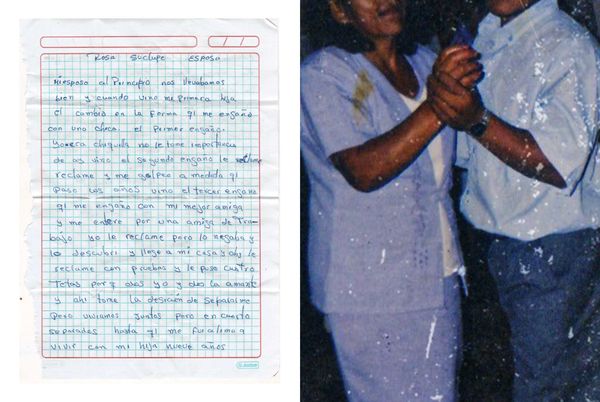 Rosa Suclupe Esposa
Miesposo al Principio nos llevabamos
bien y cuando vino mi primera hija
el cambio en la forma q' me engaño
con una chica. el Primer engaño.
Yo era chiquilla no le tome importancia
de ay vino el segundo engaño le
reclame y me golpeo a medida q'
paso los años vino el tercer engaño
q' me engaño con mi mejor amiga
y me entere por una amiga de Tra-
bajo yo le reclame pero lo negaba y
lo descubri y llego a mi casa y ahy le
reclame con pruebas y le puse cuatro
Totos por q' yo y la amante
y ahi tome la desición de separarme
pero viviamos juntos pero en cuarto
separados hasta q' me fui a lima a
vivir con mi hija nueve años